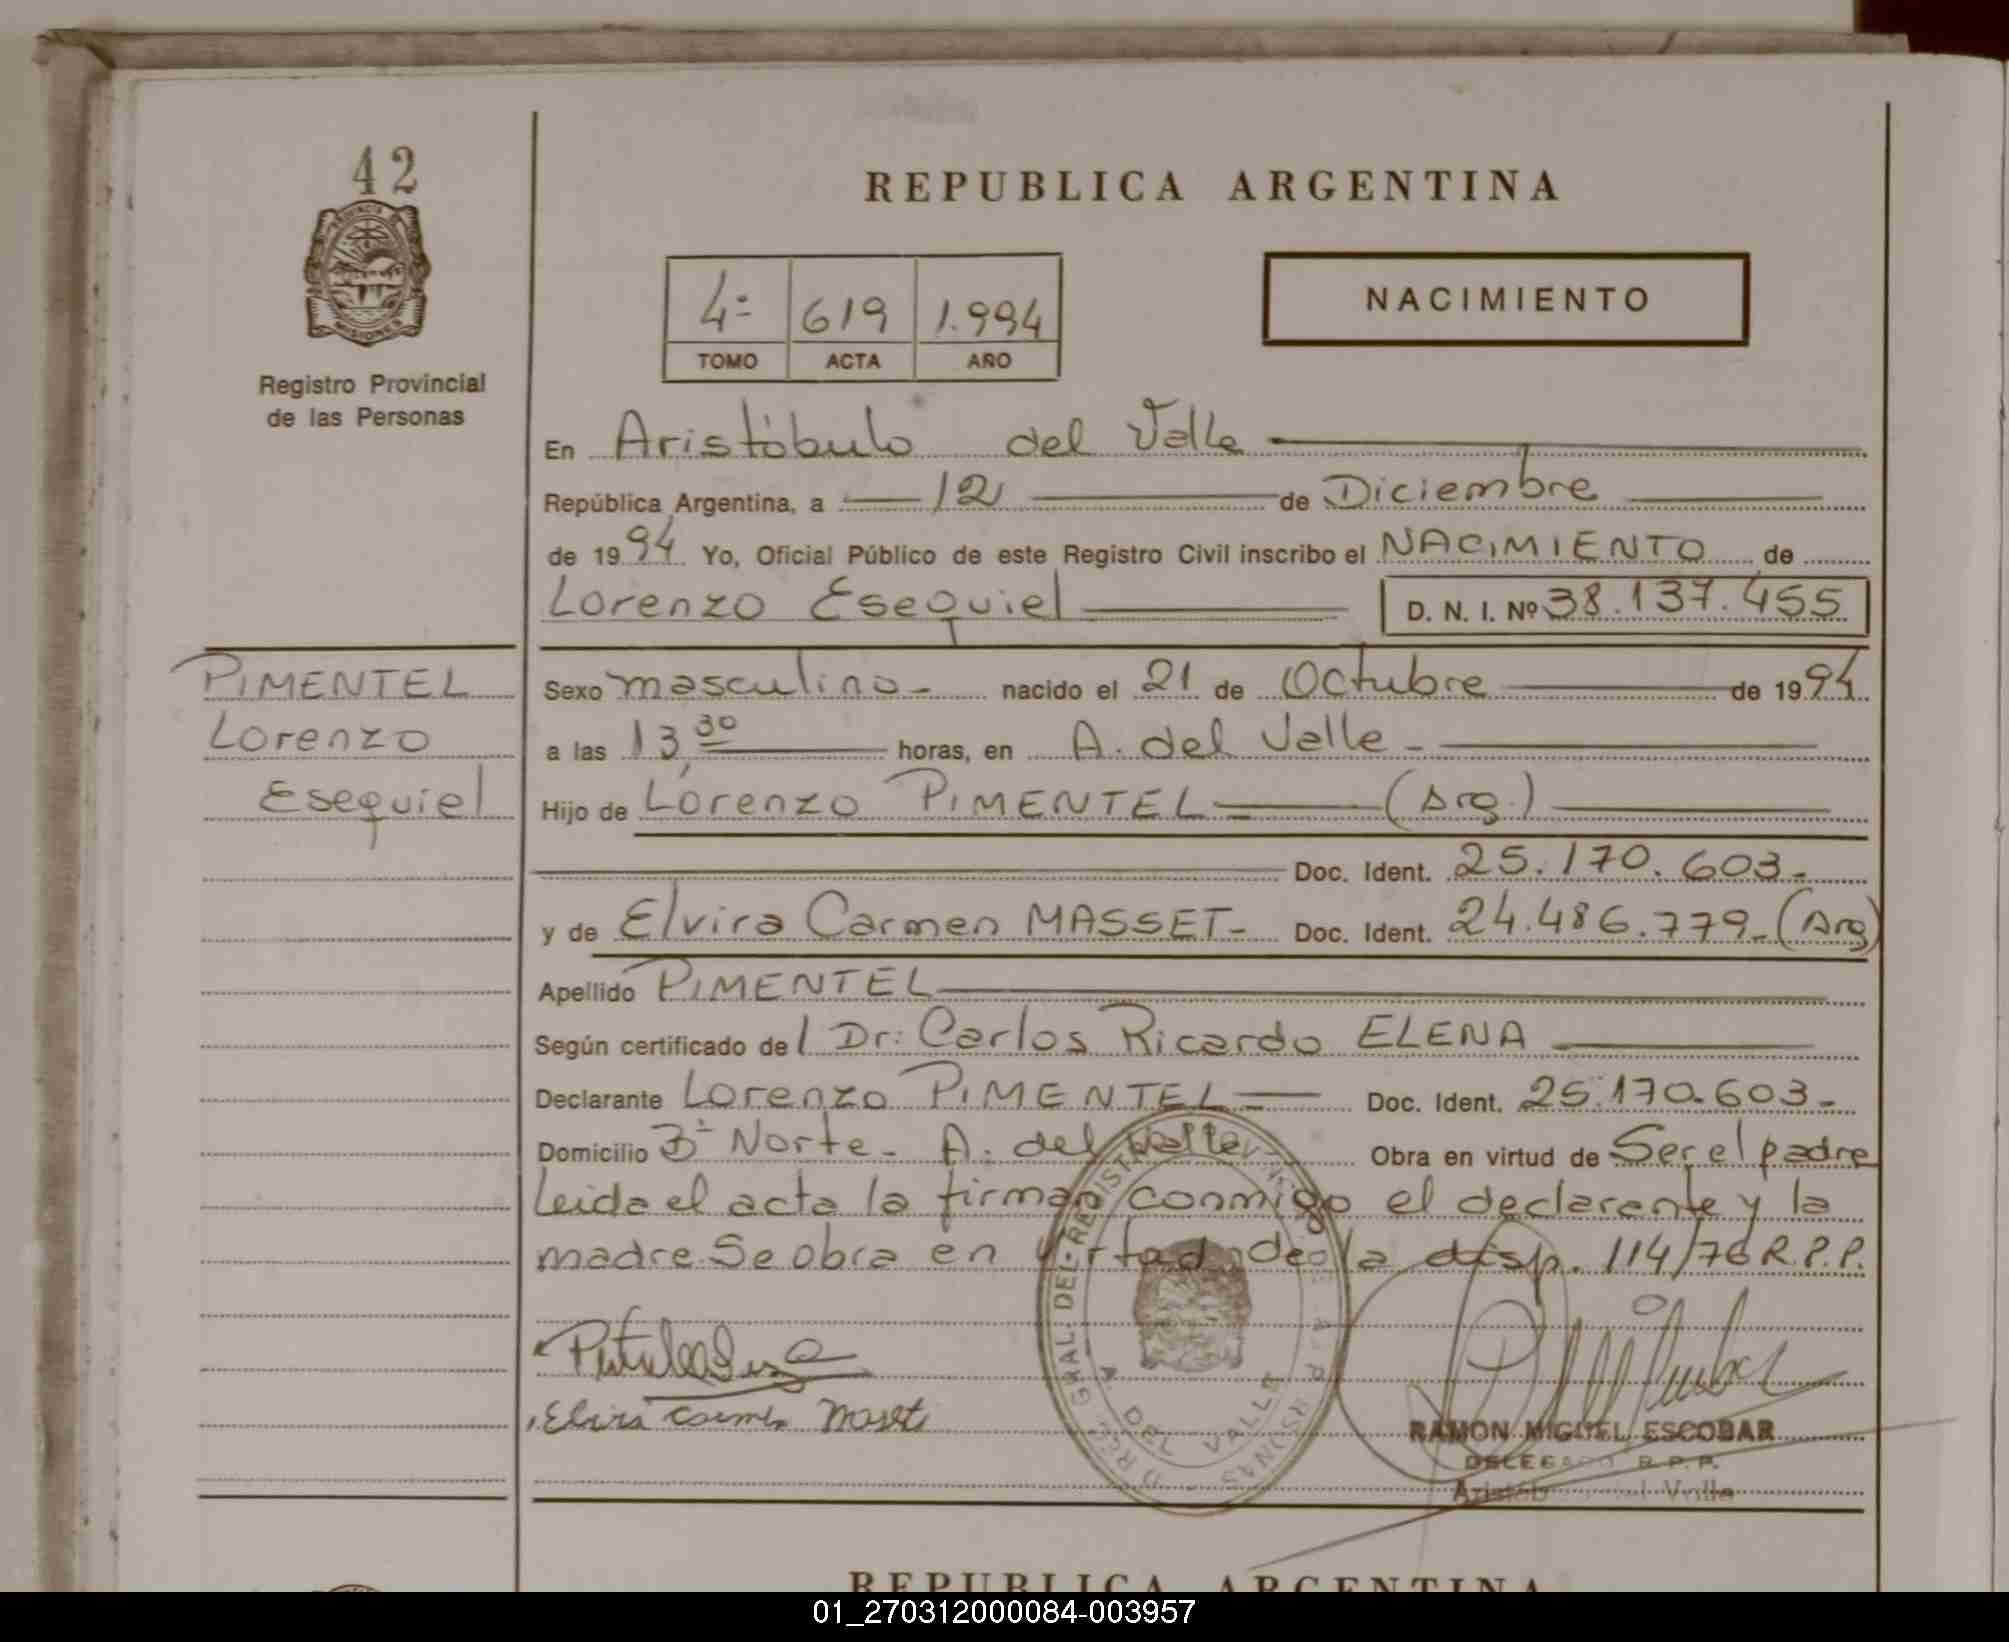 42
PROVINCIA
MISIONES
Registro Provincial
de las Personas
REPUBLICA ARGENTINA
4º 619 1.994
TOMO ACTA AÑO
NACIMIENTO
En Aristóbulo del Valle
República Argentina, a 12 de Diciembre
de 1994 Yo, Oficial Público de este Registro Civil inscribo el NACIMIENTO de
Lorenzo Esequiel D. N. I. Nº 38.137.455
PIMENTEL
Lorenzo
Esequiel
Sexo masculino.- nacido el 21 de Octubre de 1994
a las 13,30 horas, en A. del Valle -
Hijo de Lorenzo PIMENTEL (Arg.)
Doc. Ident. 25.170.603.-
y de Elvira Carmen MASSET- Doc. Ident. 24.486.779-(Arg)
Apellido PIMENTEL
Según certificado del Dr: Carlos Ricardo ELENA
Declarante Lorenzo PIMENTEL Doc. Ident. 25.170.603-
Domicilio Bº Norte- A. del Valle Obra en virtud de Ser el padre
Leida el acta la firman conmigo el declarante y la
madre. Se obra en virtud de la disp. 114/76 R.P.P.
Elvira Carmen Masset
GRAL. DEL REGISTRO
A. DEL VALLE
RAMON MIGUEL ESCOBAR
DELEGADO R.P.P.
Aristóbulo del Valle
REPUBLICA ARGENTINA
01_270312000084-003957